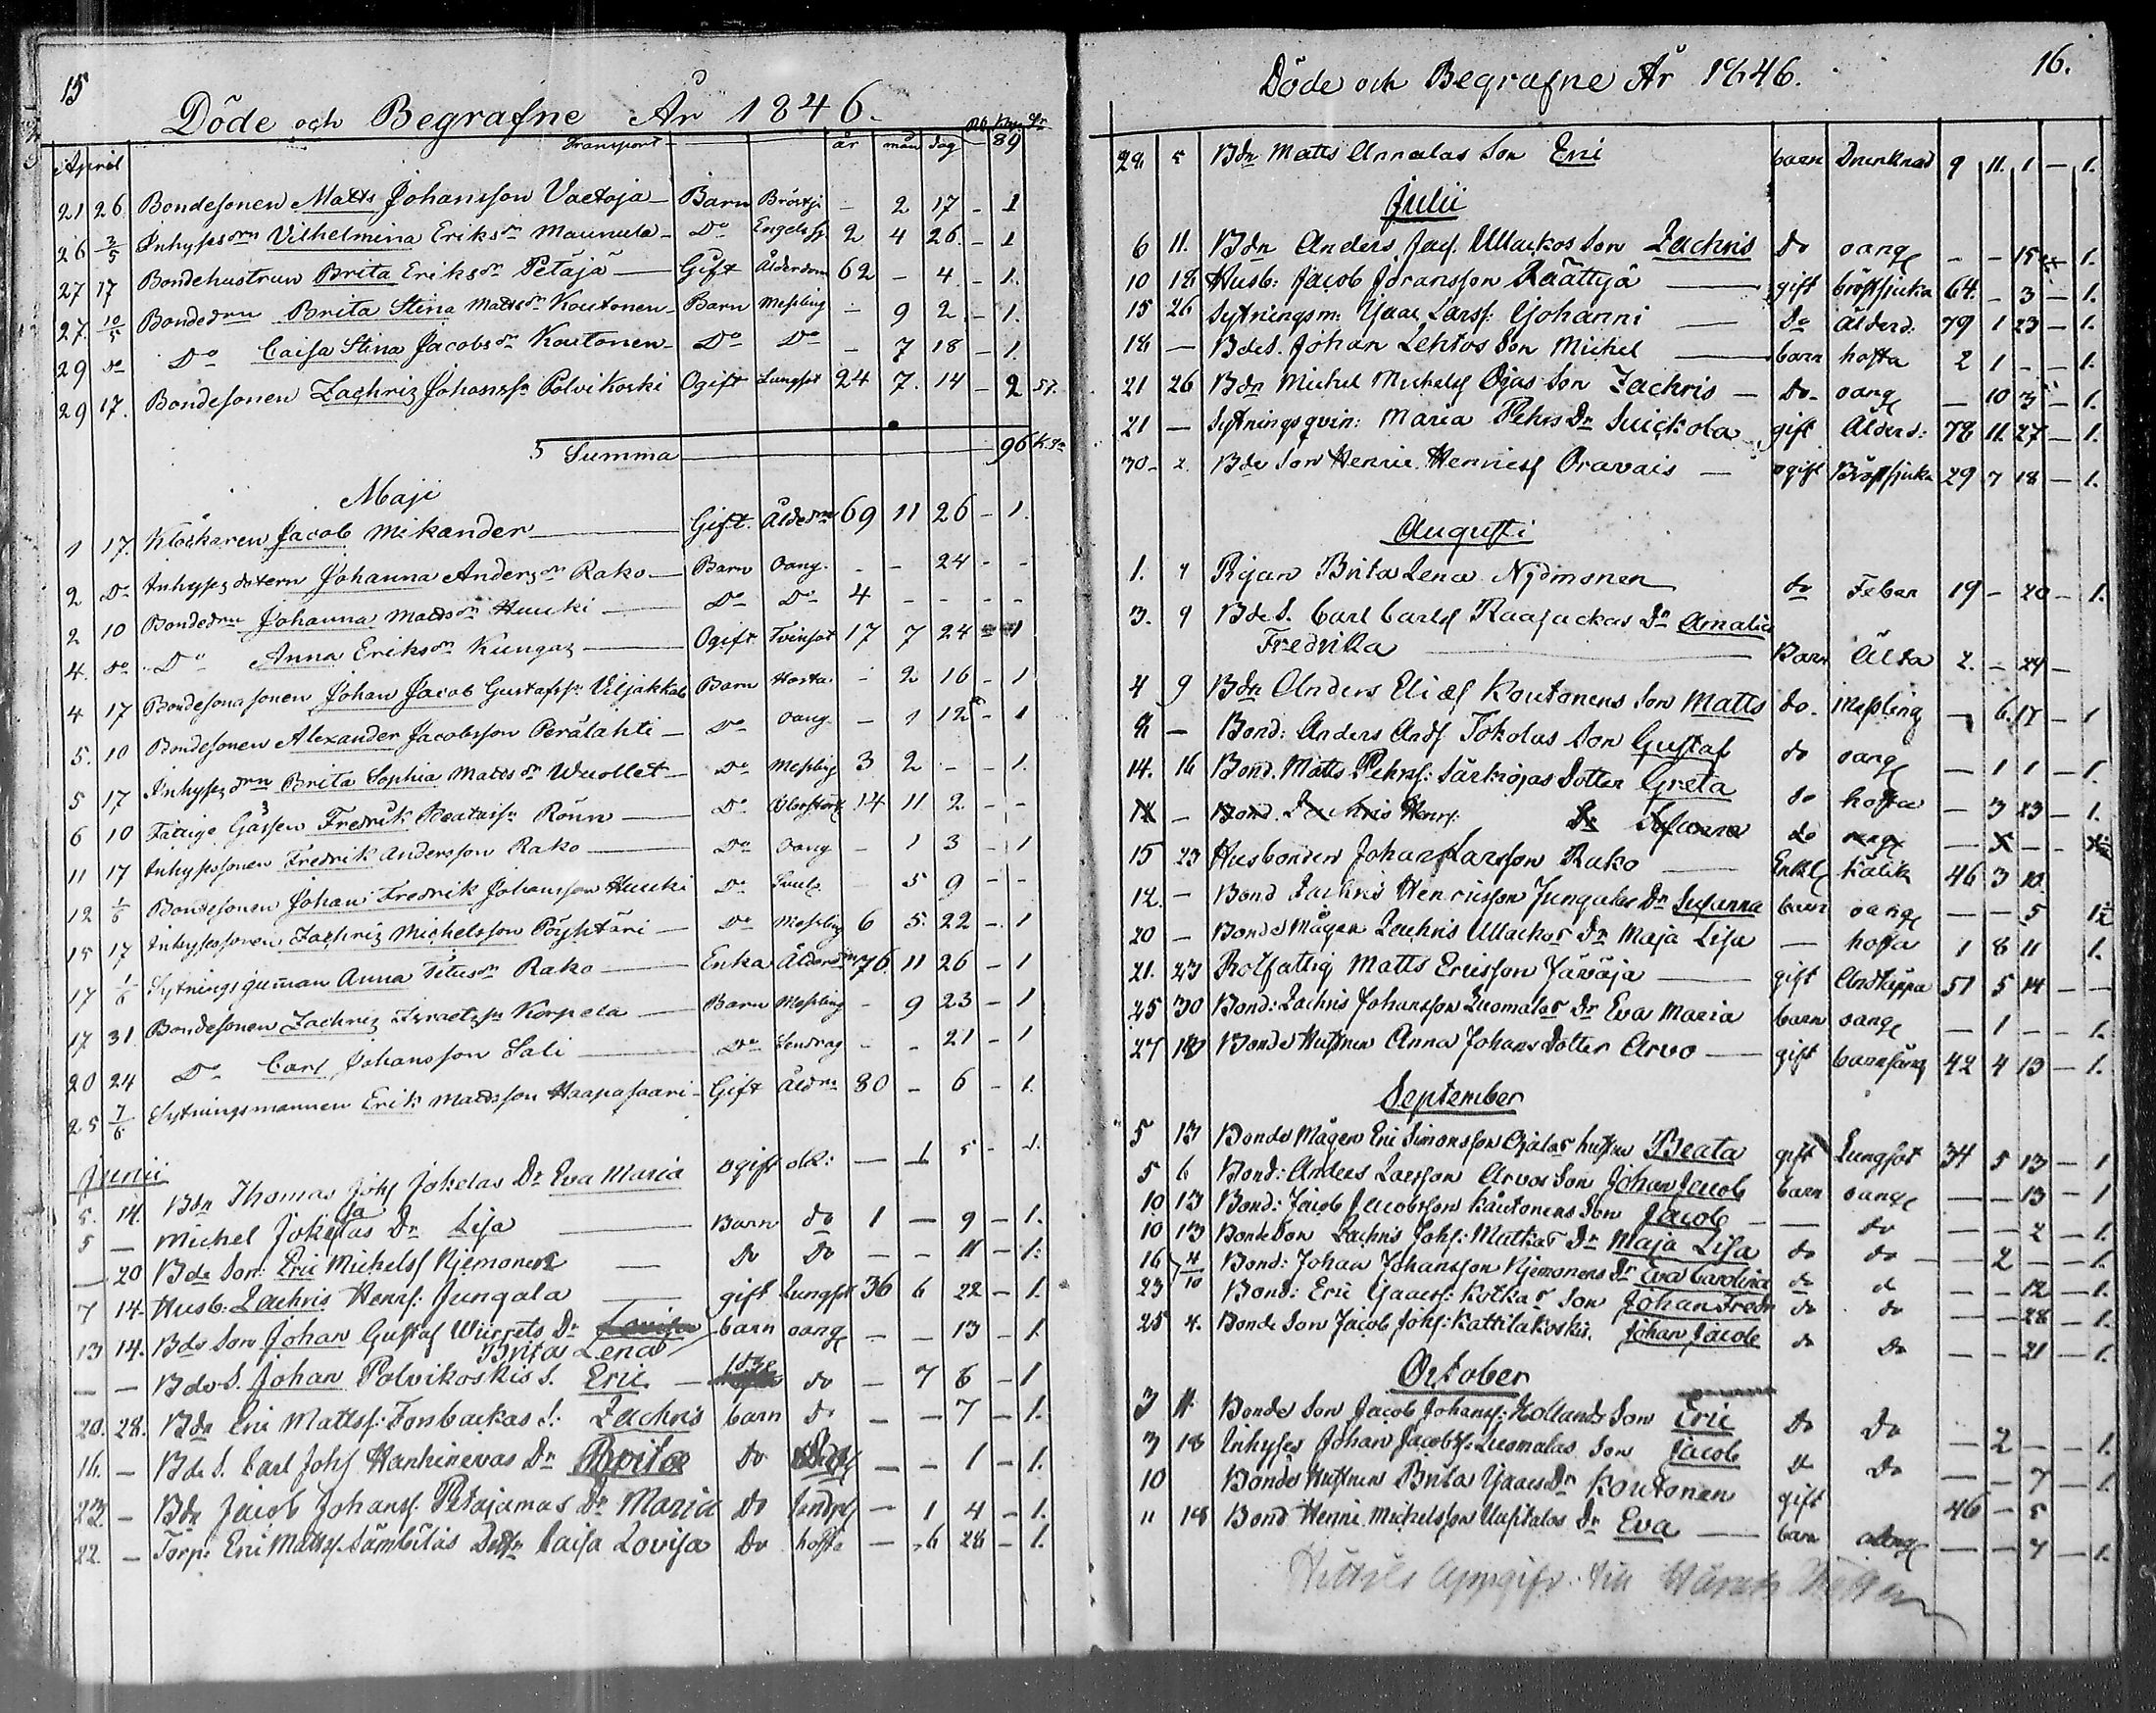 15
Döde och Begrafne År 1846.
Transport år mån dag Rb. Kop. Sr 89
April
21 26 Bondesonen Matts Johansson Vaetoja Barn Bröstsj. - 2 17 - 1
26 3/5 Inhyses drn Vilhelmina Eriksdr Maunula Do Engelsk 2 4 26 - 1
27 17 Bondehustrun Brita Eriksdr Petäjä Gift Ålderdom 62 - 4 - 1.
27. 10/5 Bondedrn Brita Stina Mattsdr Koutonen Barn Messling - 9 2 - 1.
29 do Do Caisa Stina Jacobsdr Koutonen Do Do - 7 18 - 1.
29 17. Bondesonen Zachris Johanssn Polvikoski Ogift Lungsot 24 7. 14 - 2 57.
5 Summa 96 K. Sr
Maji
1 17. Klockaren Jacob Mikander Gift. Ålderdm 69 11 26 - 1.
2 Do Inhyses dotern Johanna Andersdr Rako Barn Oang. - - 24 - -
2 10 Bondedrn Johanna Mattsdr Huuki Do Do 4 - - - -
4. do Do Anna Eriksdr Kungas Ogift Tvinsot 17 7 24 1
4 17 Bondesonasonen Johan Jacob Gustafssn Viljakkala Barn Hosta - 2 16 - 1
5. 10 Bondesonen Alexander Jacobsson Perälahti Do oang - 1 12 - 1
5 17 Inhyses drn Brita Sophia Mattsdr Wuollet Do Messling 3 2 - - 1.
6 10 Fattige Gåssen Fredrik Beataissn Rönn Do 14 11 2 - -
11 17 Inhysessonen Fredrik Andersson Rako Do oang - 1 3 - 1
12 1/6 Bondesonen Johan Fredrik Johansson Huuki Do - 5 9 - -
15 17 Inhysessonen Zachris Michelsson Pöyhtäri Do Messling 6 5 22 - 1
17 1/6 Sytningsguman Anna Titusdr Rako Enka Ålderdm 76 11 26 - 1
17 31 Bondesonen Zachris Israelssn Korpela Barn Messling - 9 23 - 1
20 24 Do Carl Johansson Sali Do Sendrag - - 21 - 1
25 7/6 Sytningsmannen Erik Mattsson Haapasaari Gift Åldrn 80 - 6 - 1.
Junii
5. 14. Bdn Thomas Johs Jokelas Dr Eva Maria ogift ok: - 1 5 - 1.
5 - Michel Jokelas Dr Lisa Barn do 1 - 9 - 1.
- 20 Bde Son: Eric Michelss Njemonen do Do - - 11 - 1.
7 14. Husb: Zachris Henrs: Jungala gift Lungsot 36 6 22 - 1.
13 14. Bde Son Johan Gustaf Wiirrets Dr Lovisa barn oang - - 13 - 1.
Brita Lena
- - Bde S. Johan Polvikoskis S. Eric do - 7 6 - 1
20. 28. Bdn Eric Mattss: Forsbackas S: Zachris barn Do - - 7 - 1.
16. - Bde S. Carl Johs Hanhinevas Dr Brita do - - 1 - 1.
23. - Bdn Jacob Johanss: Petäjamas Dr Maria do - 1 4 - 1.
22. - Torp: Eric Mattss. Sämbiläs Dottr Caisa Lovisa Do hosta - 6 28 - 1.
16.
Döde och Begrafne År 1846.
28. 5 Bdn Matts Annalas Son Eric barn Drunknad 9 11. 1 - 1.
Julii
6 11. Bdn Anders Jacs. Ullackos Son Zachris do oang - - 15 1.
10 18 Husb: Jacob Joransson Räättyä gift bröstsjuka 64. - 3 - 1.
15 26 Sytningsm: Isaac Larss: Ojohanni Do Ålderd: 79 1 23 - 1.
18 - Bde S. Johan Lehtos Son Michel barn hosta 2 1 - - 1.
21 26 Bdn Michel Michelss Ojas Son Zachris Do oang - 10 3 - 1.
21 - Sytningsqvin: Maria Pehrs Dr Suickola gift Ålderd: 78 11 27 - 1.
30 - 2. Bde Son Henric Henricss Oravais ogift Bröstsjuka 29 7 18 - 1.
Augusti
1. 9 Pigan Brita Lena Nyomonen do Feber 19 - 20 - 1.
3. 9 Bde S. Carl Carls Raajackas Dr Amalia
Fredrika Barn Ålta 2. - 24 -
4 9 Bdn Anders Eliæs Koutonens Son Matts do. Messling - 6. 17 - 1
8 - Bond: Anders Ands Tokolas Son Gustaf do oang - 1 1 - 1.
14. 16 Bond. Matts Pehrss: Särkiojas Dotter Greta do hosta - 3 23 - 1.
12 - Bond Zachris Henrs: Dr Susanna do oang -
15 23 Husbonden Johan Larsson Rako Enkl Kålik 46 3 10.
12. - Bond Zachris Henricsson Jungalas Dr Susanna barn oang - - 5 1 1/2
20 - Bonde Mågen Zachris Ullackos Dr Maja Lisa - hosta 1 8 11 1.
21. 23 Rotfattig Matts Ericsson Järväjä gift Andtäppa 51 5 14 - -
25 30 Bond: Zachris Johansson Luomalas Dr Eva Maria barn oang - 1 - - 1.
27 18 Bonde Hustrun Anna Johans Dotter Arvo gift barnsäng 42 4 13 - 1.
September
5 13 Bonde Mågen Eric Simonsson Ojalas hustru Beata gift Lungsot 34 5 13 - 1
5 6 Bond: Anders Larsson Arvos Son Johan Jacob barn oang - - 13 - 1
10 13 Bond: Jacob Jacobsson Kåutonens Son Jacob - do - - 2 - 1.
10 13 Bonde Son Zachris Johs: Matkas Dr Maja Lisa do do - 2 - - 1.
16 4/10 Bond: Johan Johansson Njemonens Dr Eva Carolina do d - - 12 - 1.
23 Bond: Eric Isacss: Kotkas Son Johan Fredr do do - - 28 - 1.
25 4. Bonde Son Jacob Johs: Kattilakoskis. Johan Jacob do Do - - 21 - 1.
October
3 11 Bonde Son Jacob Johanss: Hollands Son Eric Do Do - 2 - - 1.
3 18 Inhyses Johan Jacobss: Luomalas Son Jacob d Do - - 7 - 1.
10 Bonde Hustrun Brita Isaacs Dr Koutonen gift 46 - 5
11 18 Bond Henric Michelsson Uusitalos Dr Eva barn oang - - 7 - 1.
Hittils uppgift till